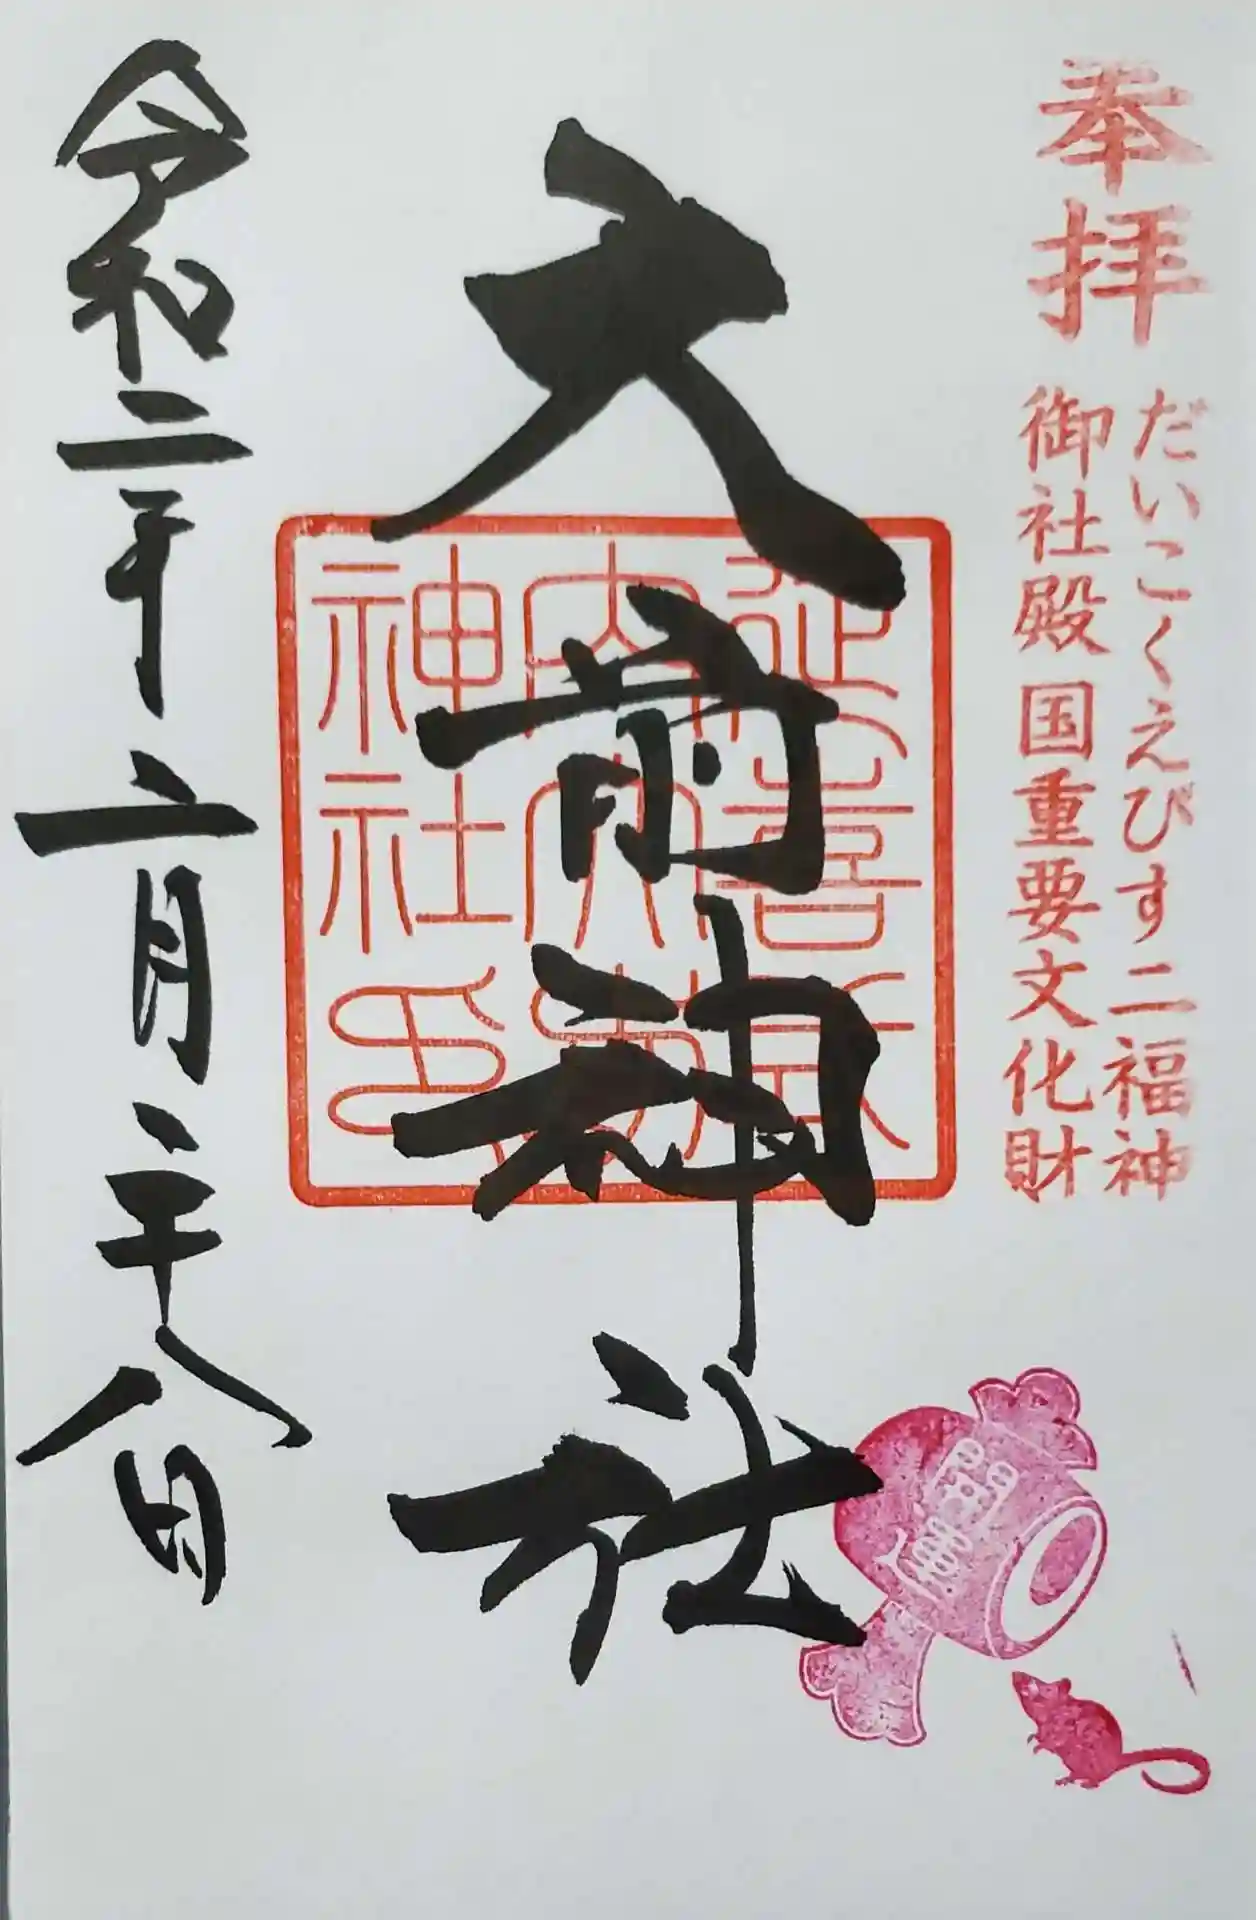 奉拝
だいこくえびす二福神
御社殿 国重要文化財
大前神社
延喜式
内大前
神社印
令和二年二月二十八日